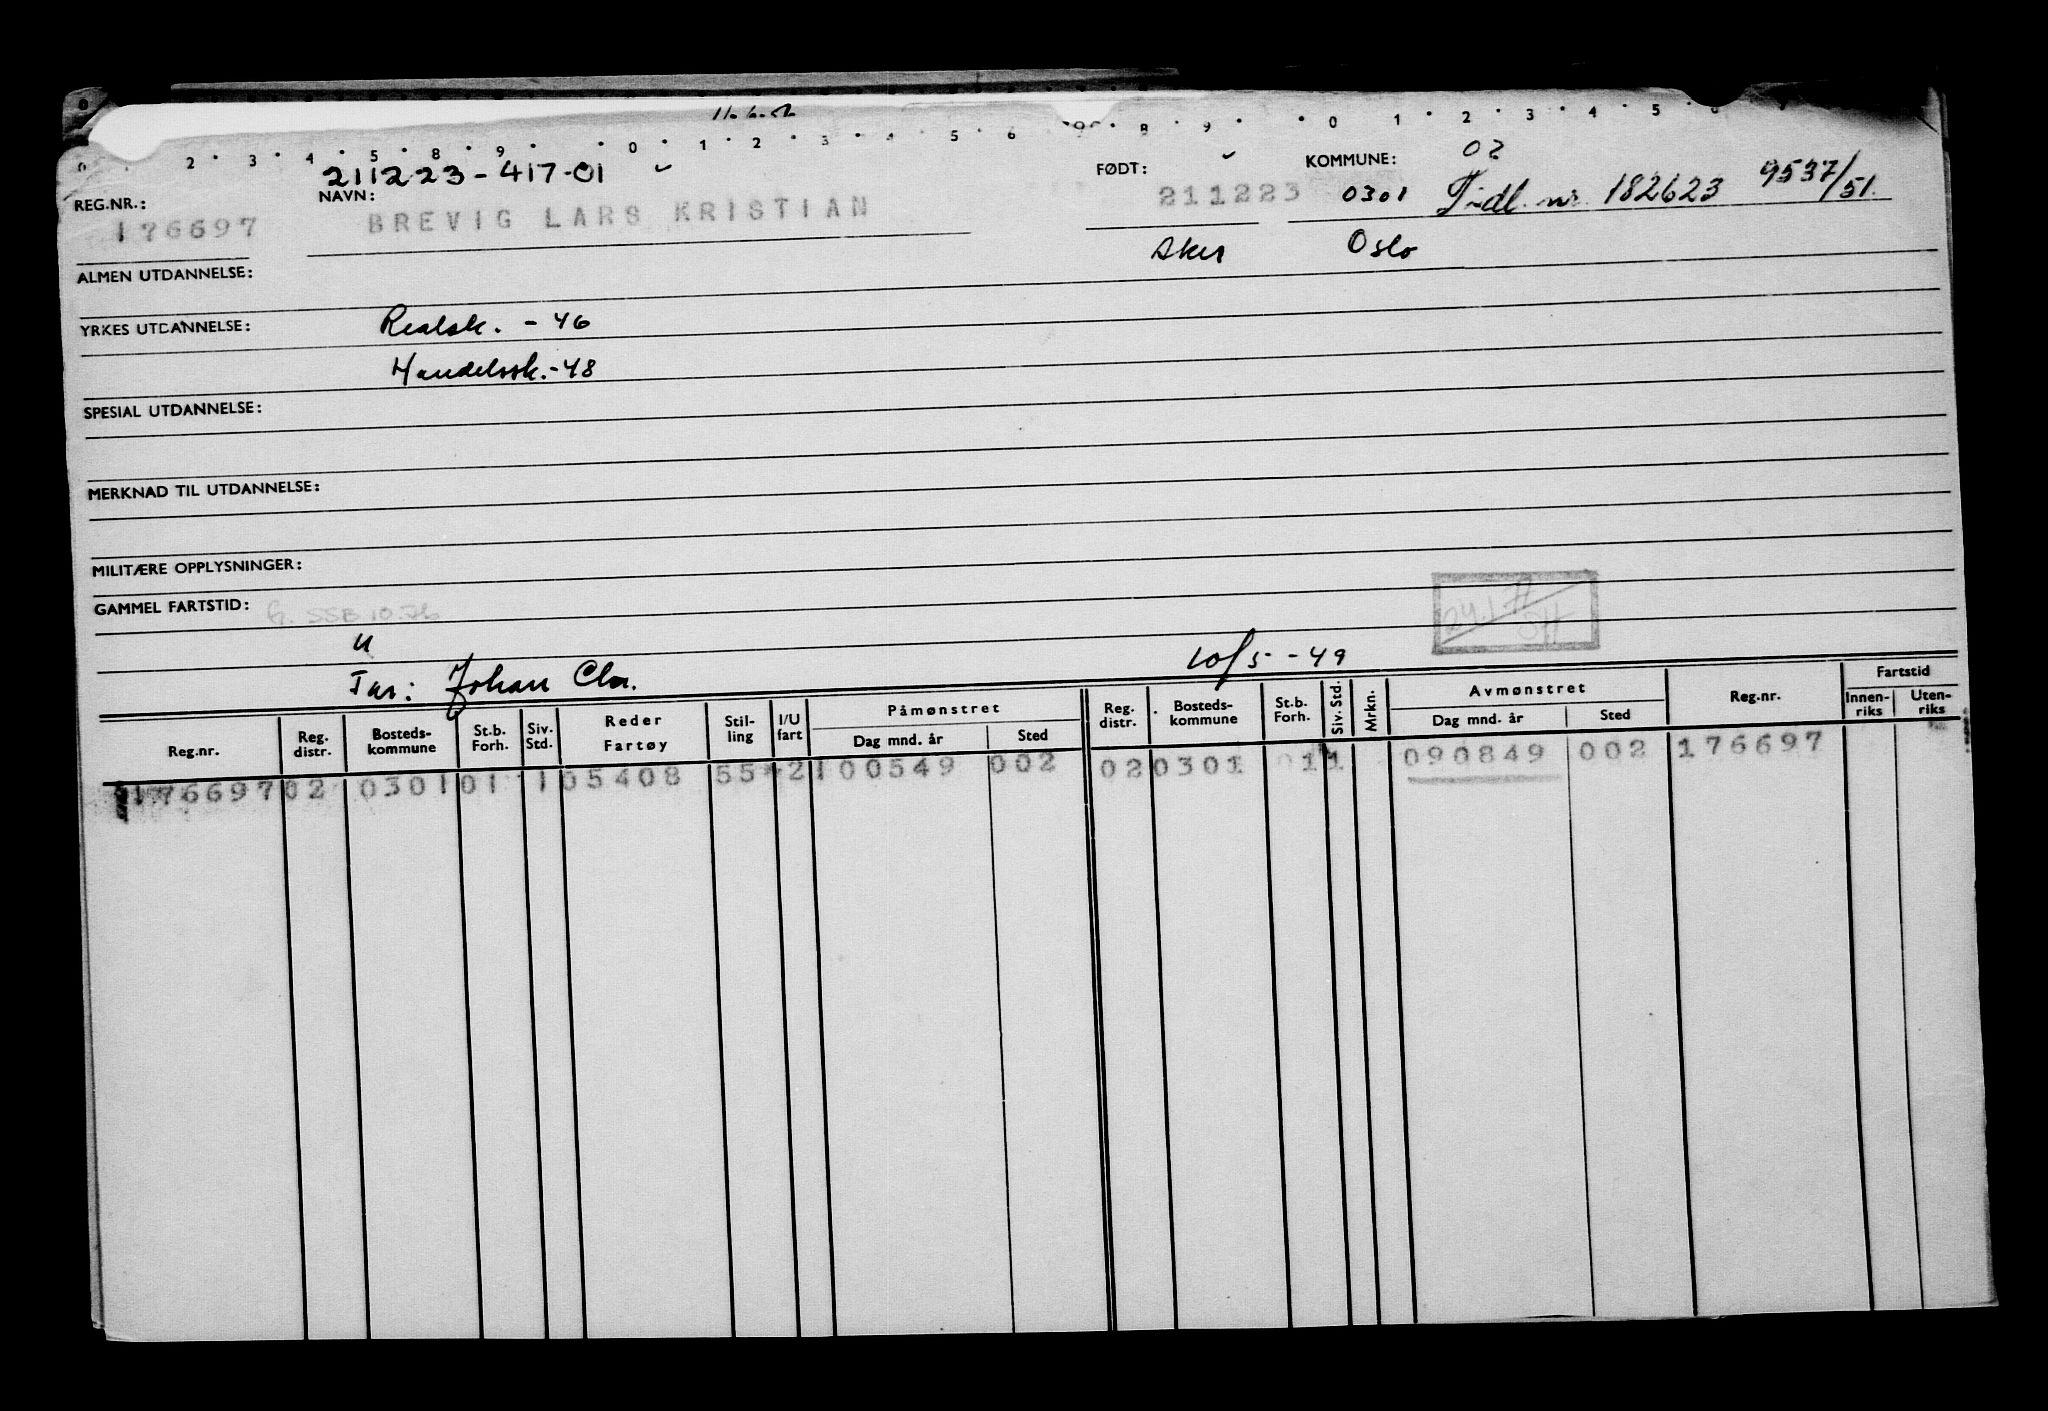 2 3 4 5 8 9 0 1 2 3 4 5 6 8 9 0 1 2 3 4 5
211223-417-01
FØDT: KOMMUNE: 02
REG.NR.: NAVN: 211223 0301 Tidl. nr. 182623 9537/51.
176697 BREVIG LARS KRISTIAN
Aker Oslo
ALMEN UTDANNELSE:
YRKES UTDANNELSE: Realsk. - 46
Handelssk. - 48
SPESIAL UTDANNELSE:
MERKNAD TIL UTDANNELSE:
MILITÆRE OPPLYSNINGER:
GAMMEL FARTSTID: SSB 10.76
U
Far: Johan Chr. 10/5 - 49
Reg.nr. Reg. distr. Bosteds-kommune St.b. Forh. Siv. Std. Reder Fartøy Stil-ling I/U fart Påmønstret Dag mnd. år Sted Reg. distr. Bosteds-kommune St.b. Forh. Siv. Std. Mrkn. Avmønstret Dag mnd. år Sted Reg.nr. Fartstid Innen-riks Uten-riks
176697 02 0301 01 1 05408 55 2 100549 002 02 0301 01 1 090849 002 176697